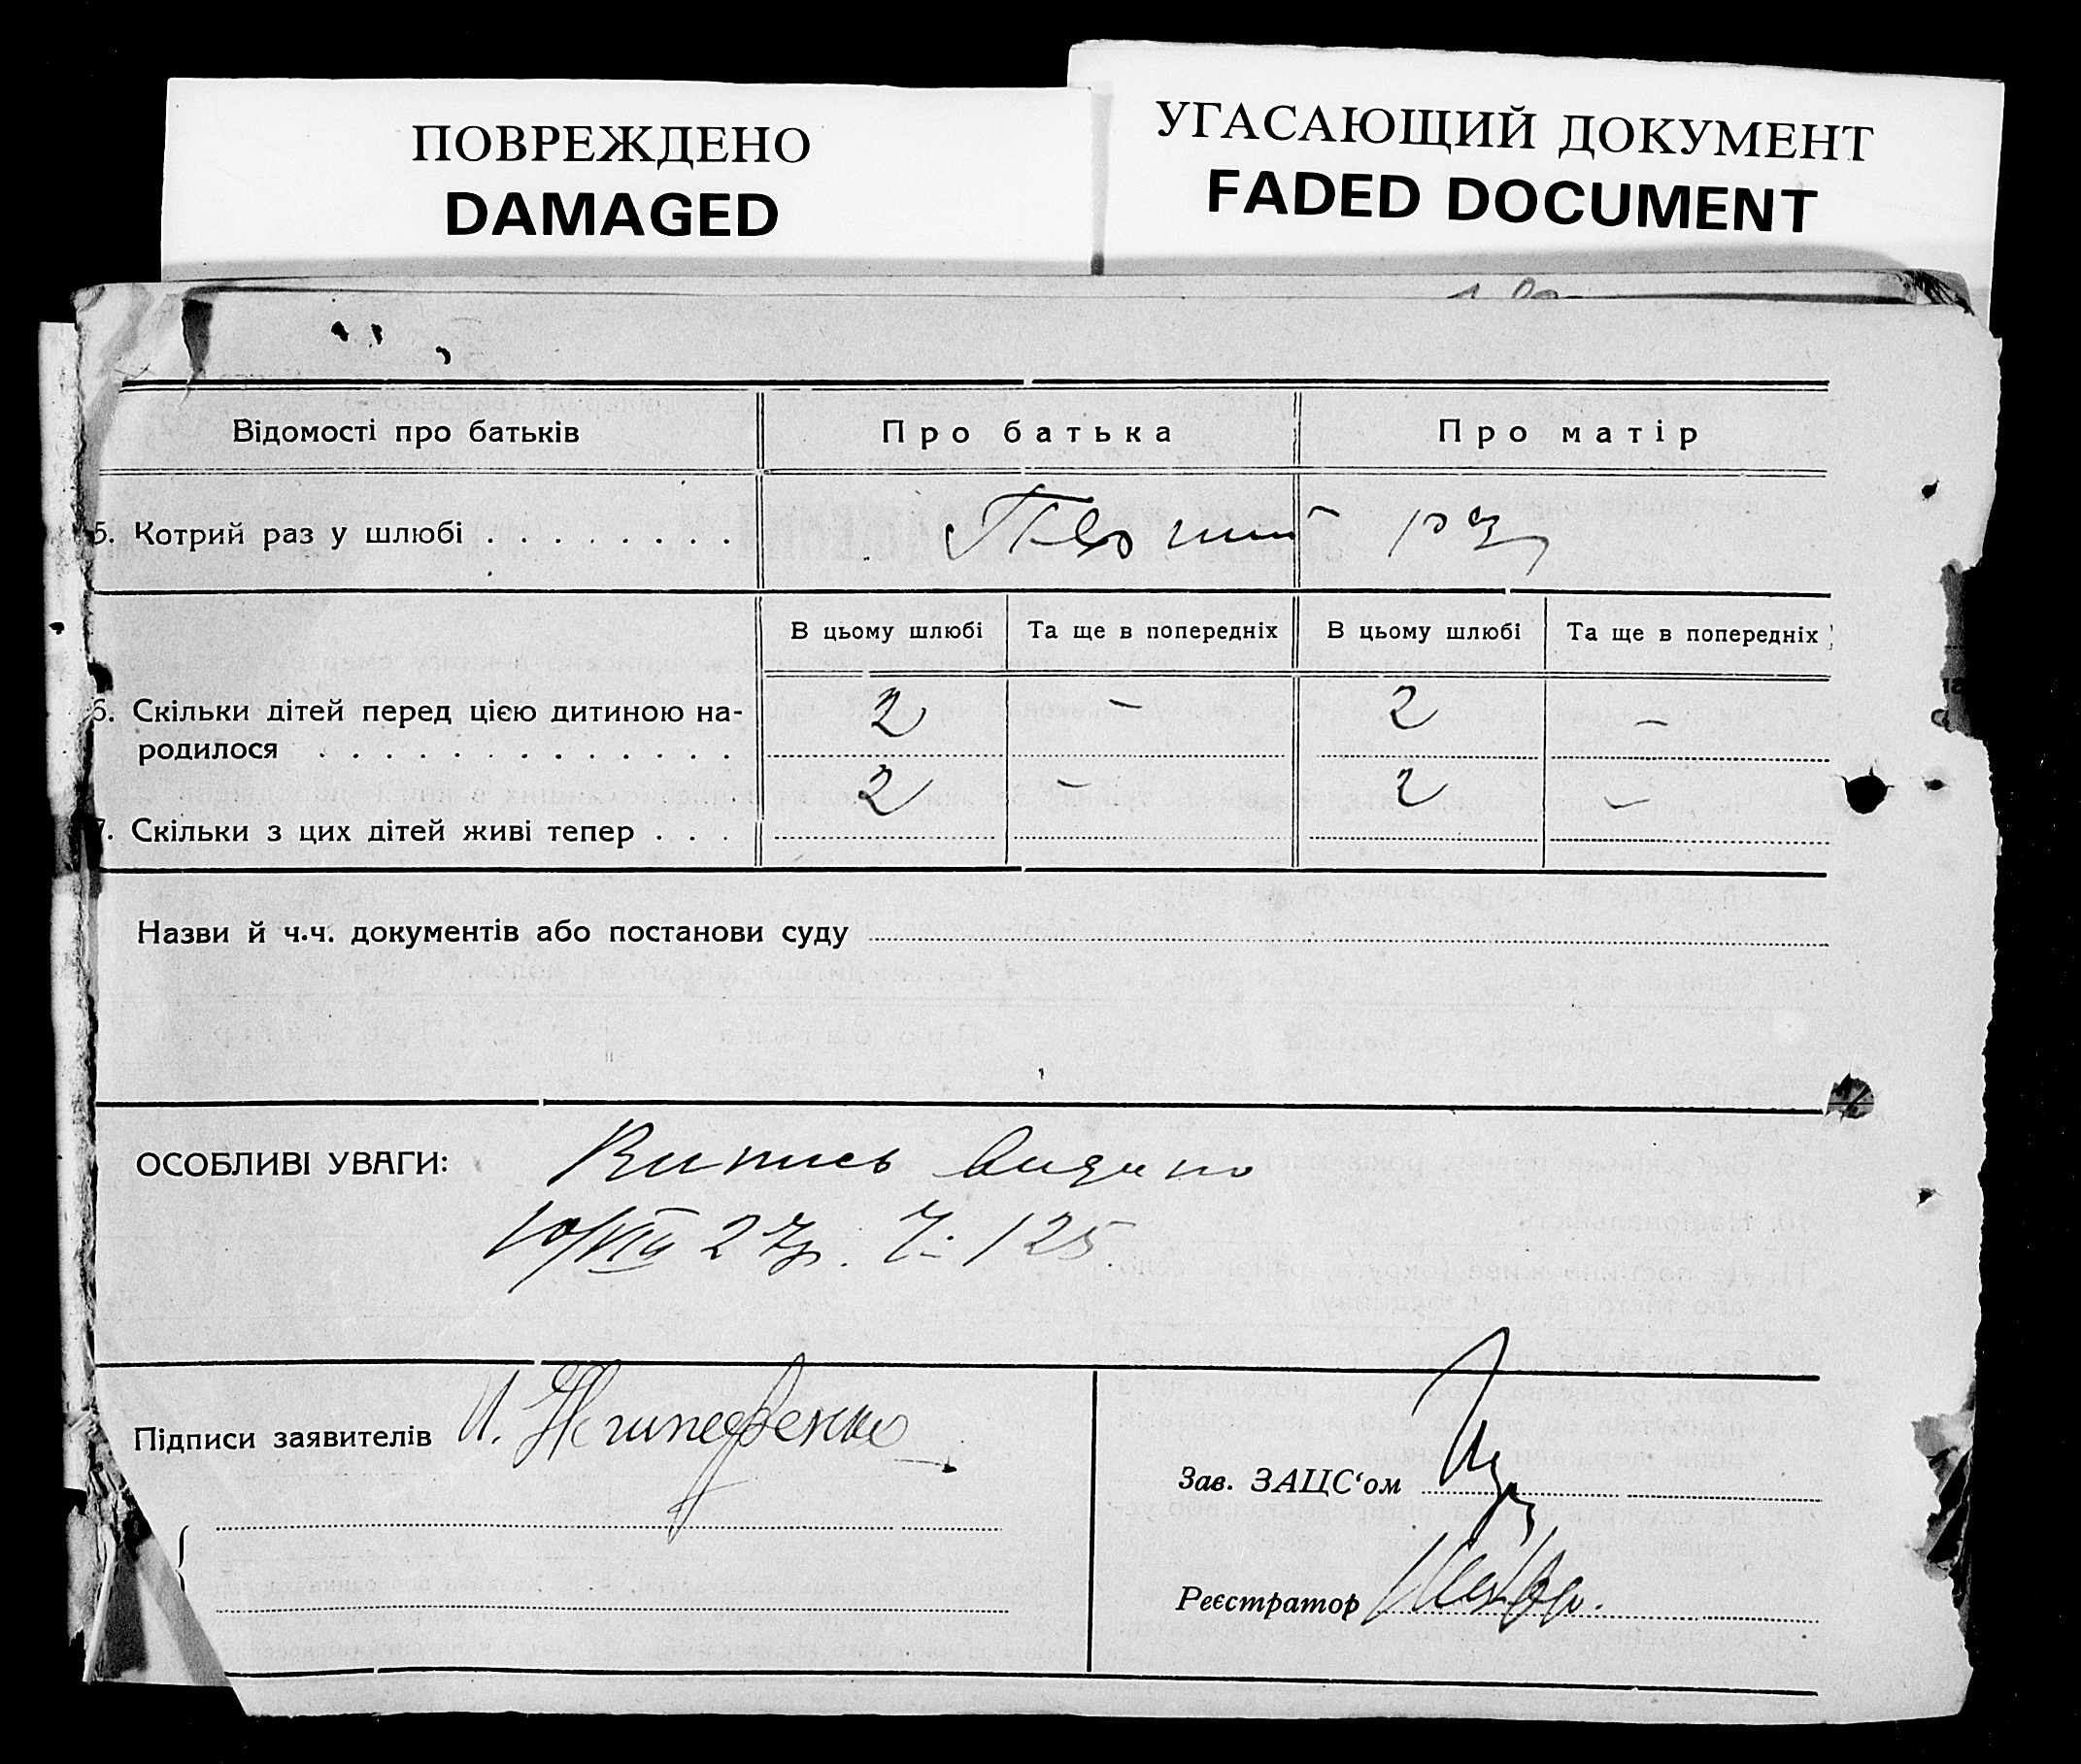 ПОВРЕЖДЕНО
DAMAGED
УГАСАЮЩИЙ ДОКУМЕНТ
FADED DOCUMENT
Відомості про батьків
Про батька
Про матір
5. Котрий раз у шлюбі . . . . . . . .
Перший раз
В цьому шлюбі
Та ще в попередніх
В цьому шлюбі
Та ще в попередніх
6. Скільки дітей перед цією дитиною на-
родилося . . . . . . . . . . . . .
2 - 2 -
7. Скільки з цих дітей живі тепер . . .
2 - 2 -
Назви й ч.ч. документів або постанови суду
ОСОБЛИВІ УВАГИ:
Випись видано
10/VIII 27р. Ч. 125
Підписи заявителів
Зав. ЗАЦС‘ом
Реєстратор